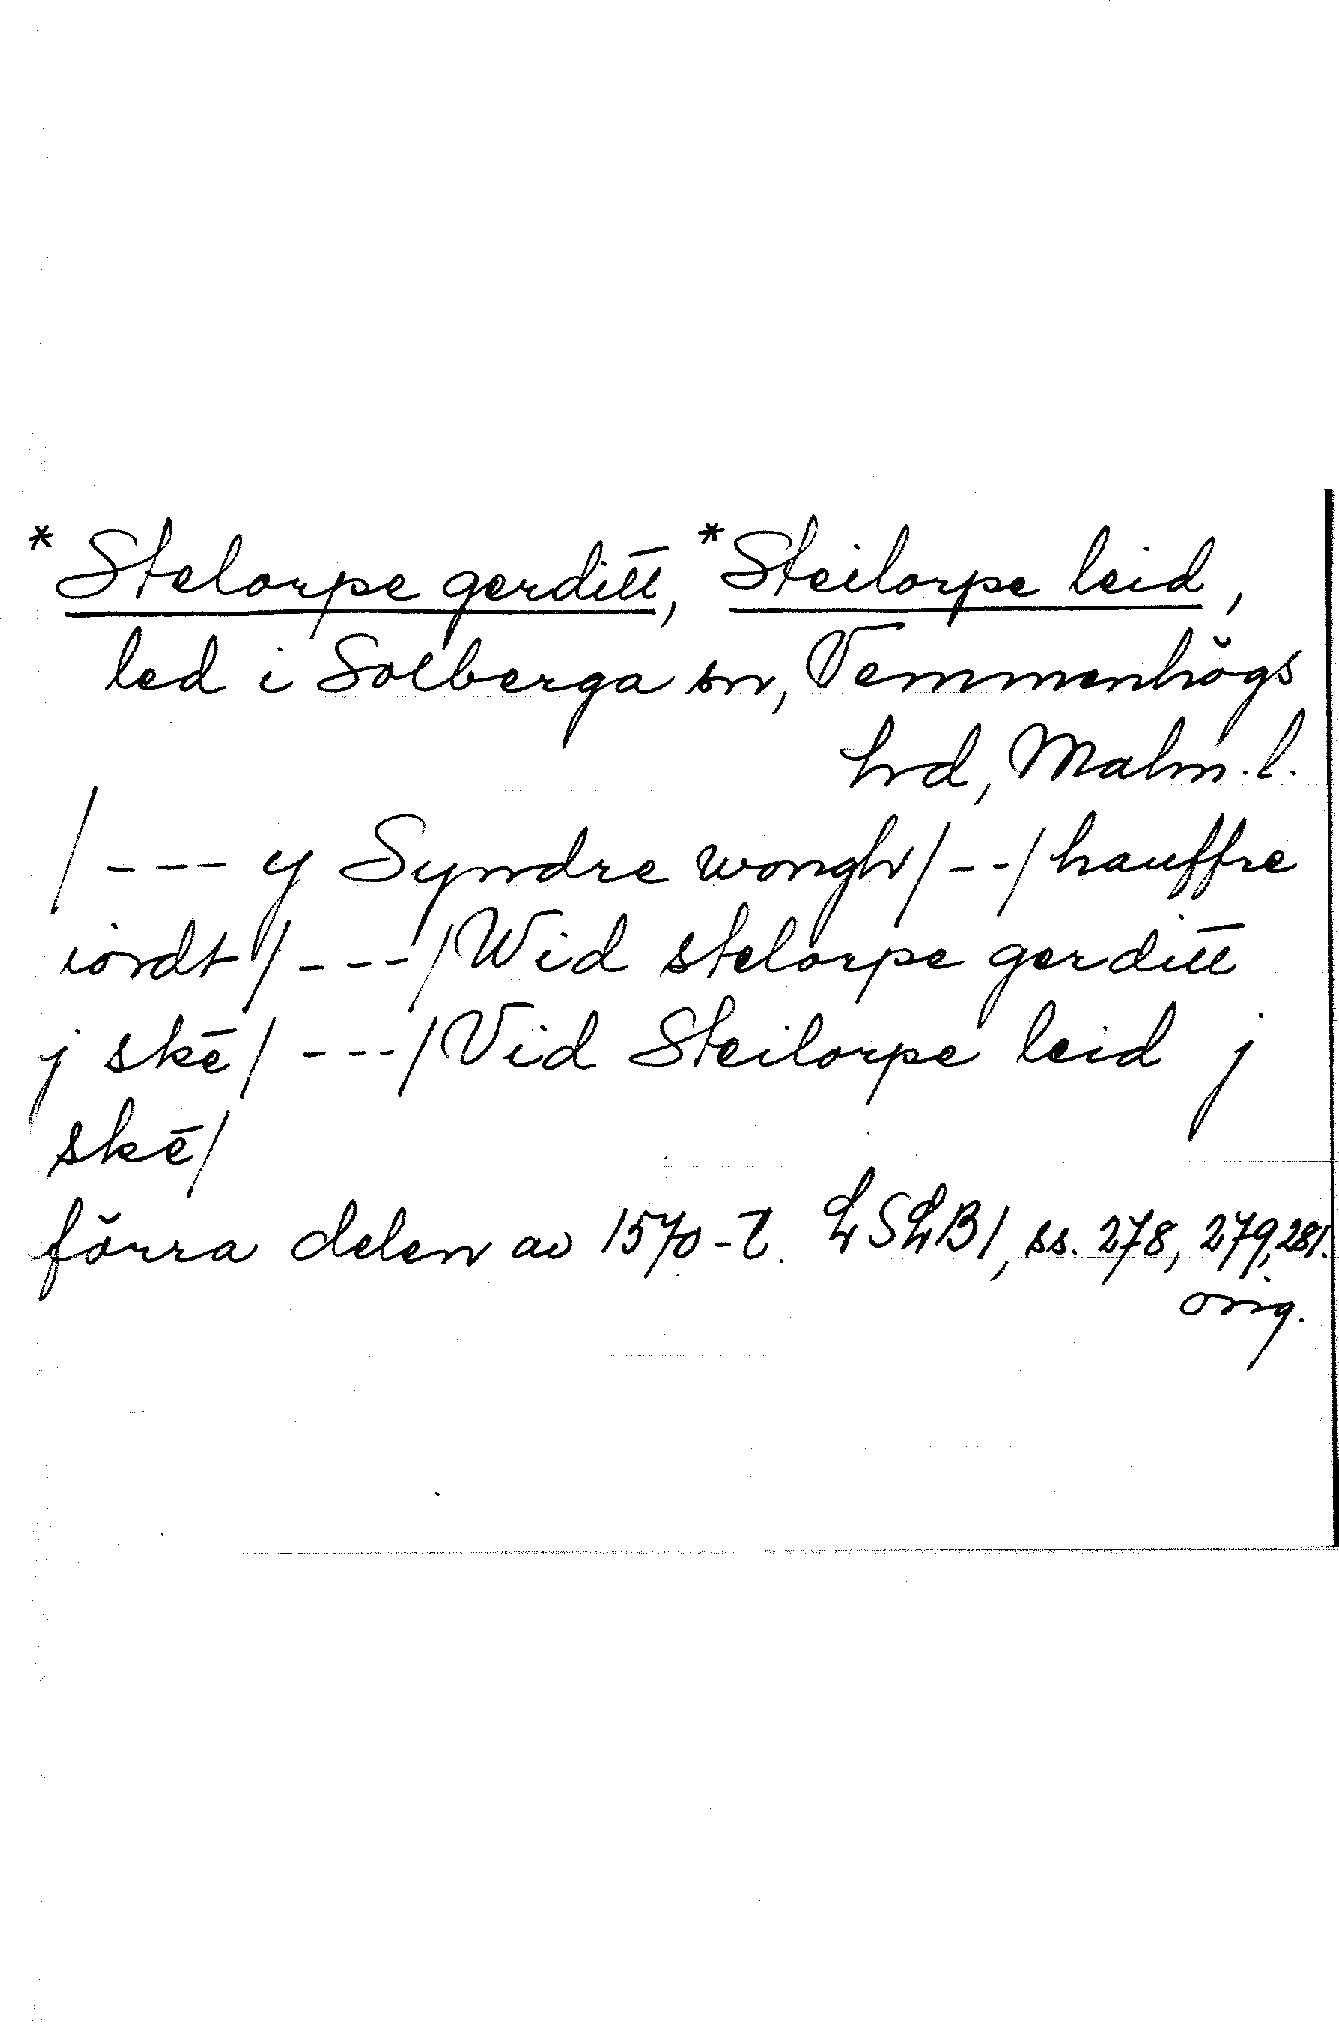 *Stelorpe gerditt, *Steilorpe leid,
led i Solberga sn, Vemmenhögs
hrd, Malm. l.
/--- y Syndre wongh/--/hauffre
iordt/---/Wid stelorpe gerditt
j skē/---/Vid Steilorpe leid j
skē/
förra delen av 1570-t. LSLB1, ss. 278, 279, 281.
orig.